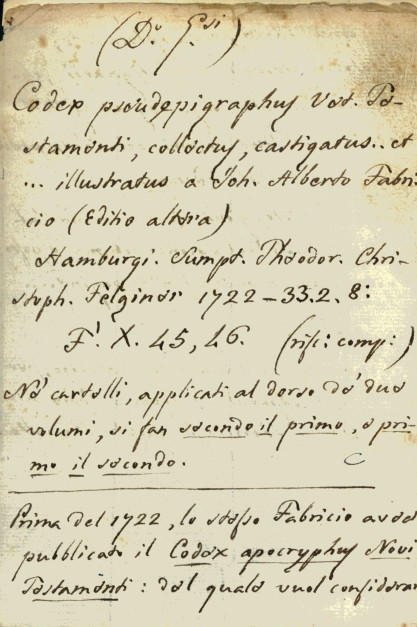 (D.° G.si)
Codex pseudepigraphus Vet. Te-
stamenti, collectus, castigatus.. et
... illustratus a Joh. Alberto Fabri-
cio (Editio altera)
Hamburgi. Sumpt. Theodor. Chri-
stoph. Felginer 1722-33. 2. 8:
F'. X. 45, 46. (risc: comp:)
Ne' cartelli, applicati al dorso de' due
volumi, si fan secondo il primo, e pri-
mo il secondo.
Prima del 1722, lo stesso Fabricio avea
pubblicato il Codex apocryphus Novi
Testamenti: del quale vuol considerar